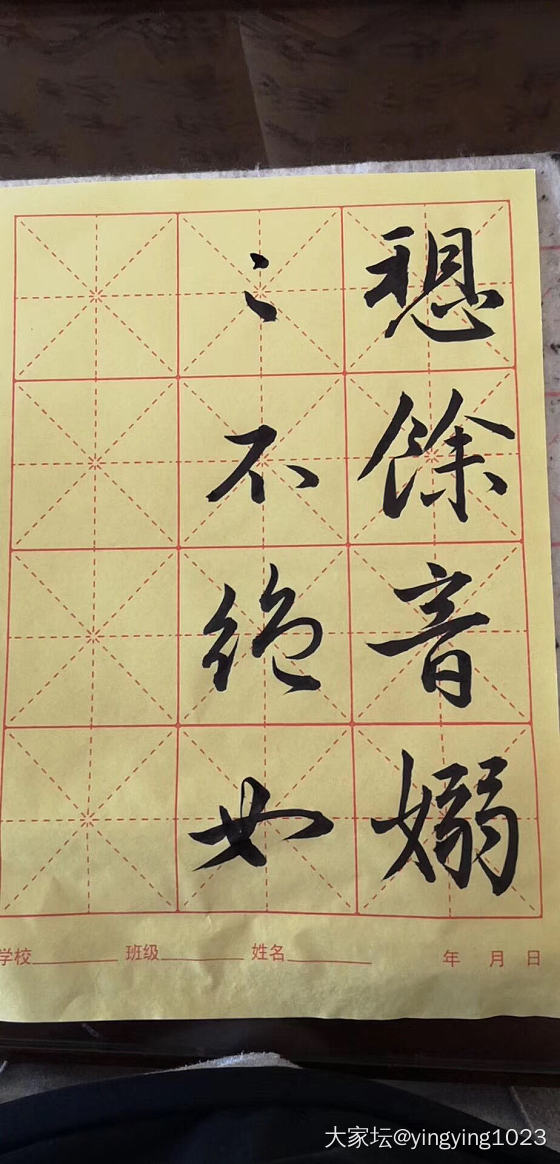 愬餘音嫋
〻不絶如
学校 班级 姓名 年 月 日
大家坛@yingying1023